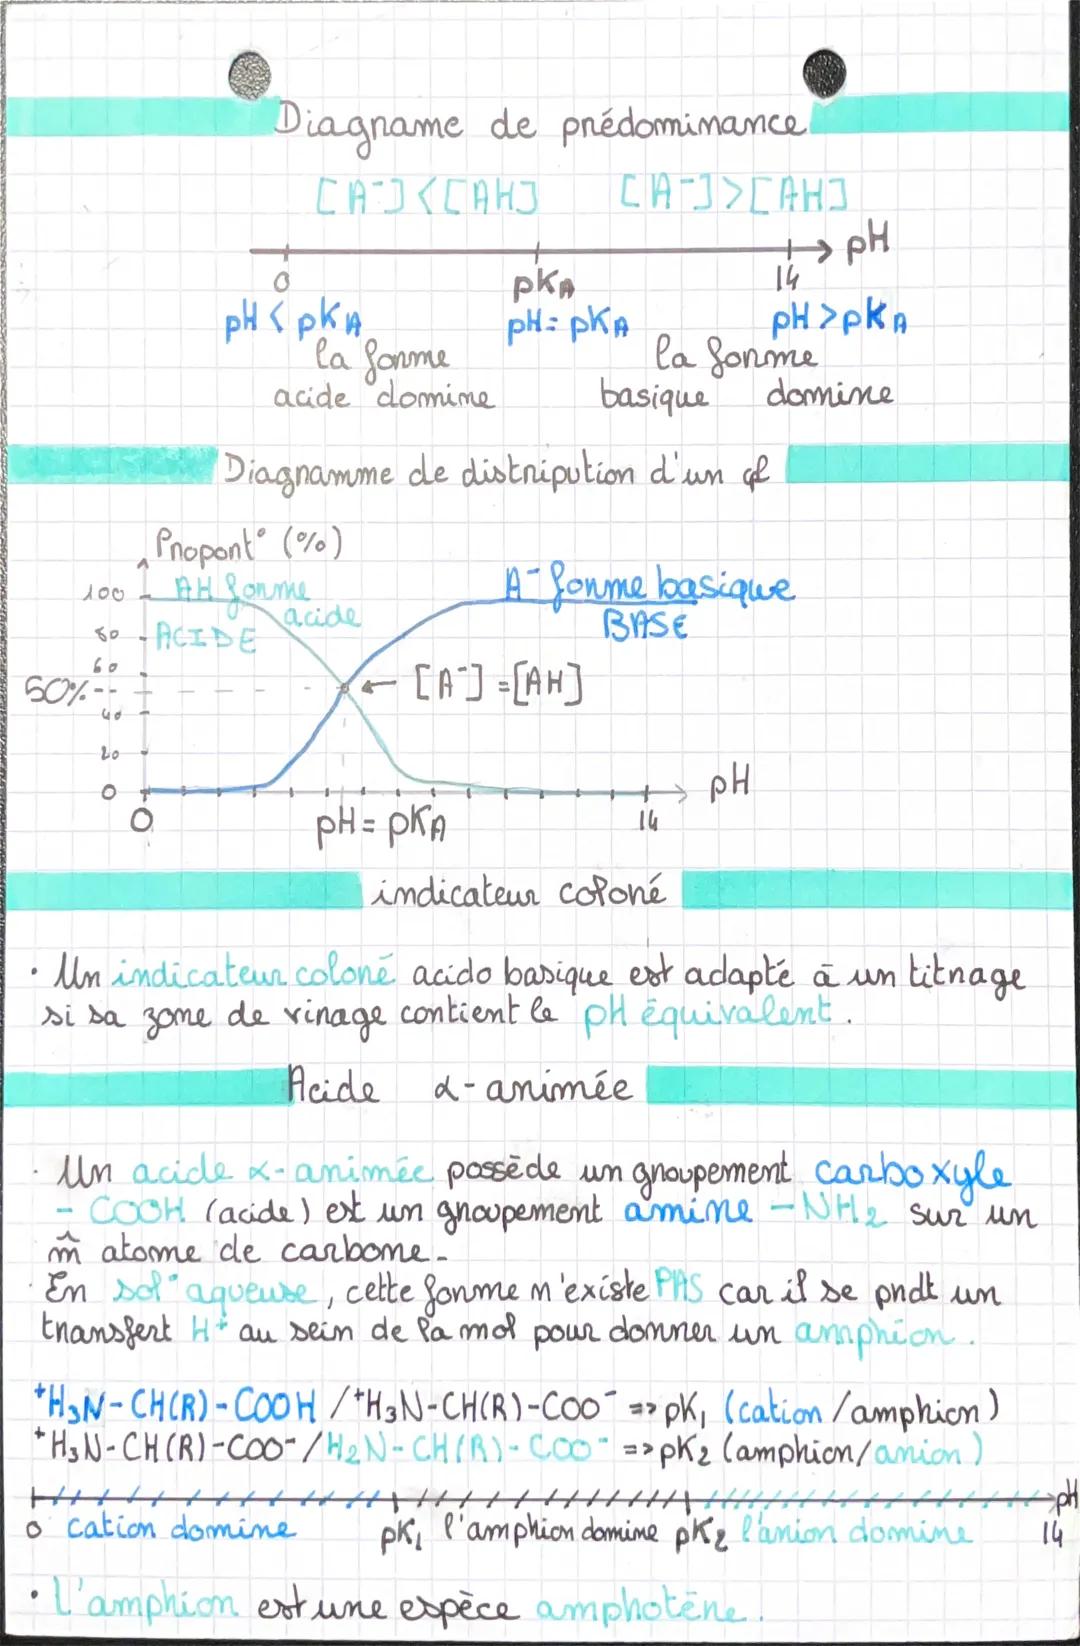 Diagname de prédominance
[A⁻]<[AH] [A⁻]>[AH]
pH
0 pKA 14
pH < pKA pH = pKA pH > pKA
la forme la forme
acide domine basique domine
Diagramme de distripution d'un
Proport° (%)
100 AH forme acide A⁻ forme basique
80 ACIDE BASE
60
50% ← [A⁻] = [AH]
40
20
0 pH
0 pH = pKA 14
indicateur coloré
• Un indicateur coloré acido basique est adapté à un titrage
si sa zone de virage contient le pH équivalent.
Acide α-animée
· Un acide α-animée possède un groupement carboxyle
- COOH (acide) est un groupement amine -NH₂ sur un
m̂ atome de carbone.
· En sol° aqueuse, cette forme n'existe PAS car il se pndt un
transfert H⁺ au sein de la mol pour donner un amphion.
⁺H₃N-CH(R)-COOH / ⁺H₃N-CH(R)-COO⁻ => pK₁ (cation/amphion)
⁺H₃N-CH(R)-COO⁻ / H₂N-CH(R)-COO⁻ => pK₂ (amphion/anion)
pH
0 cation domine pK₁ l'amphion domine pK₂ l'anion domine 14
• L'amphion est une espèce amphotère.